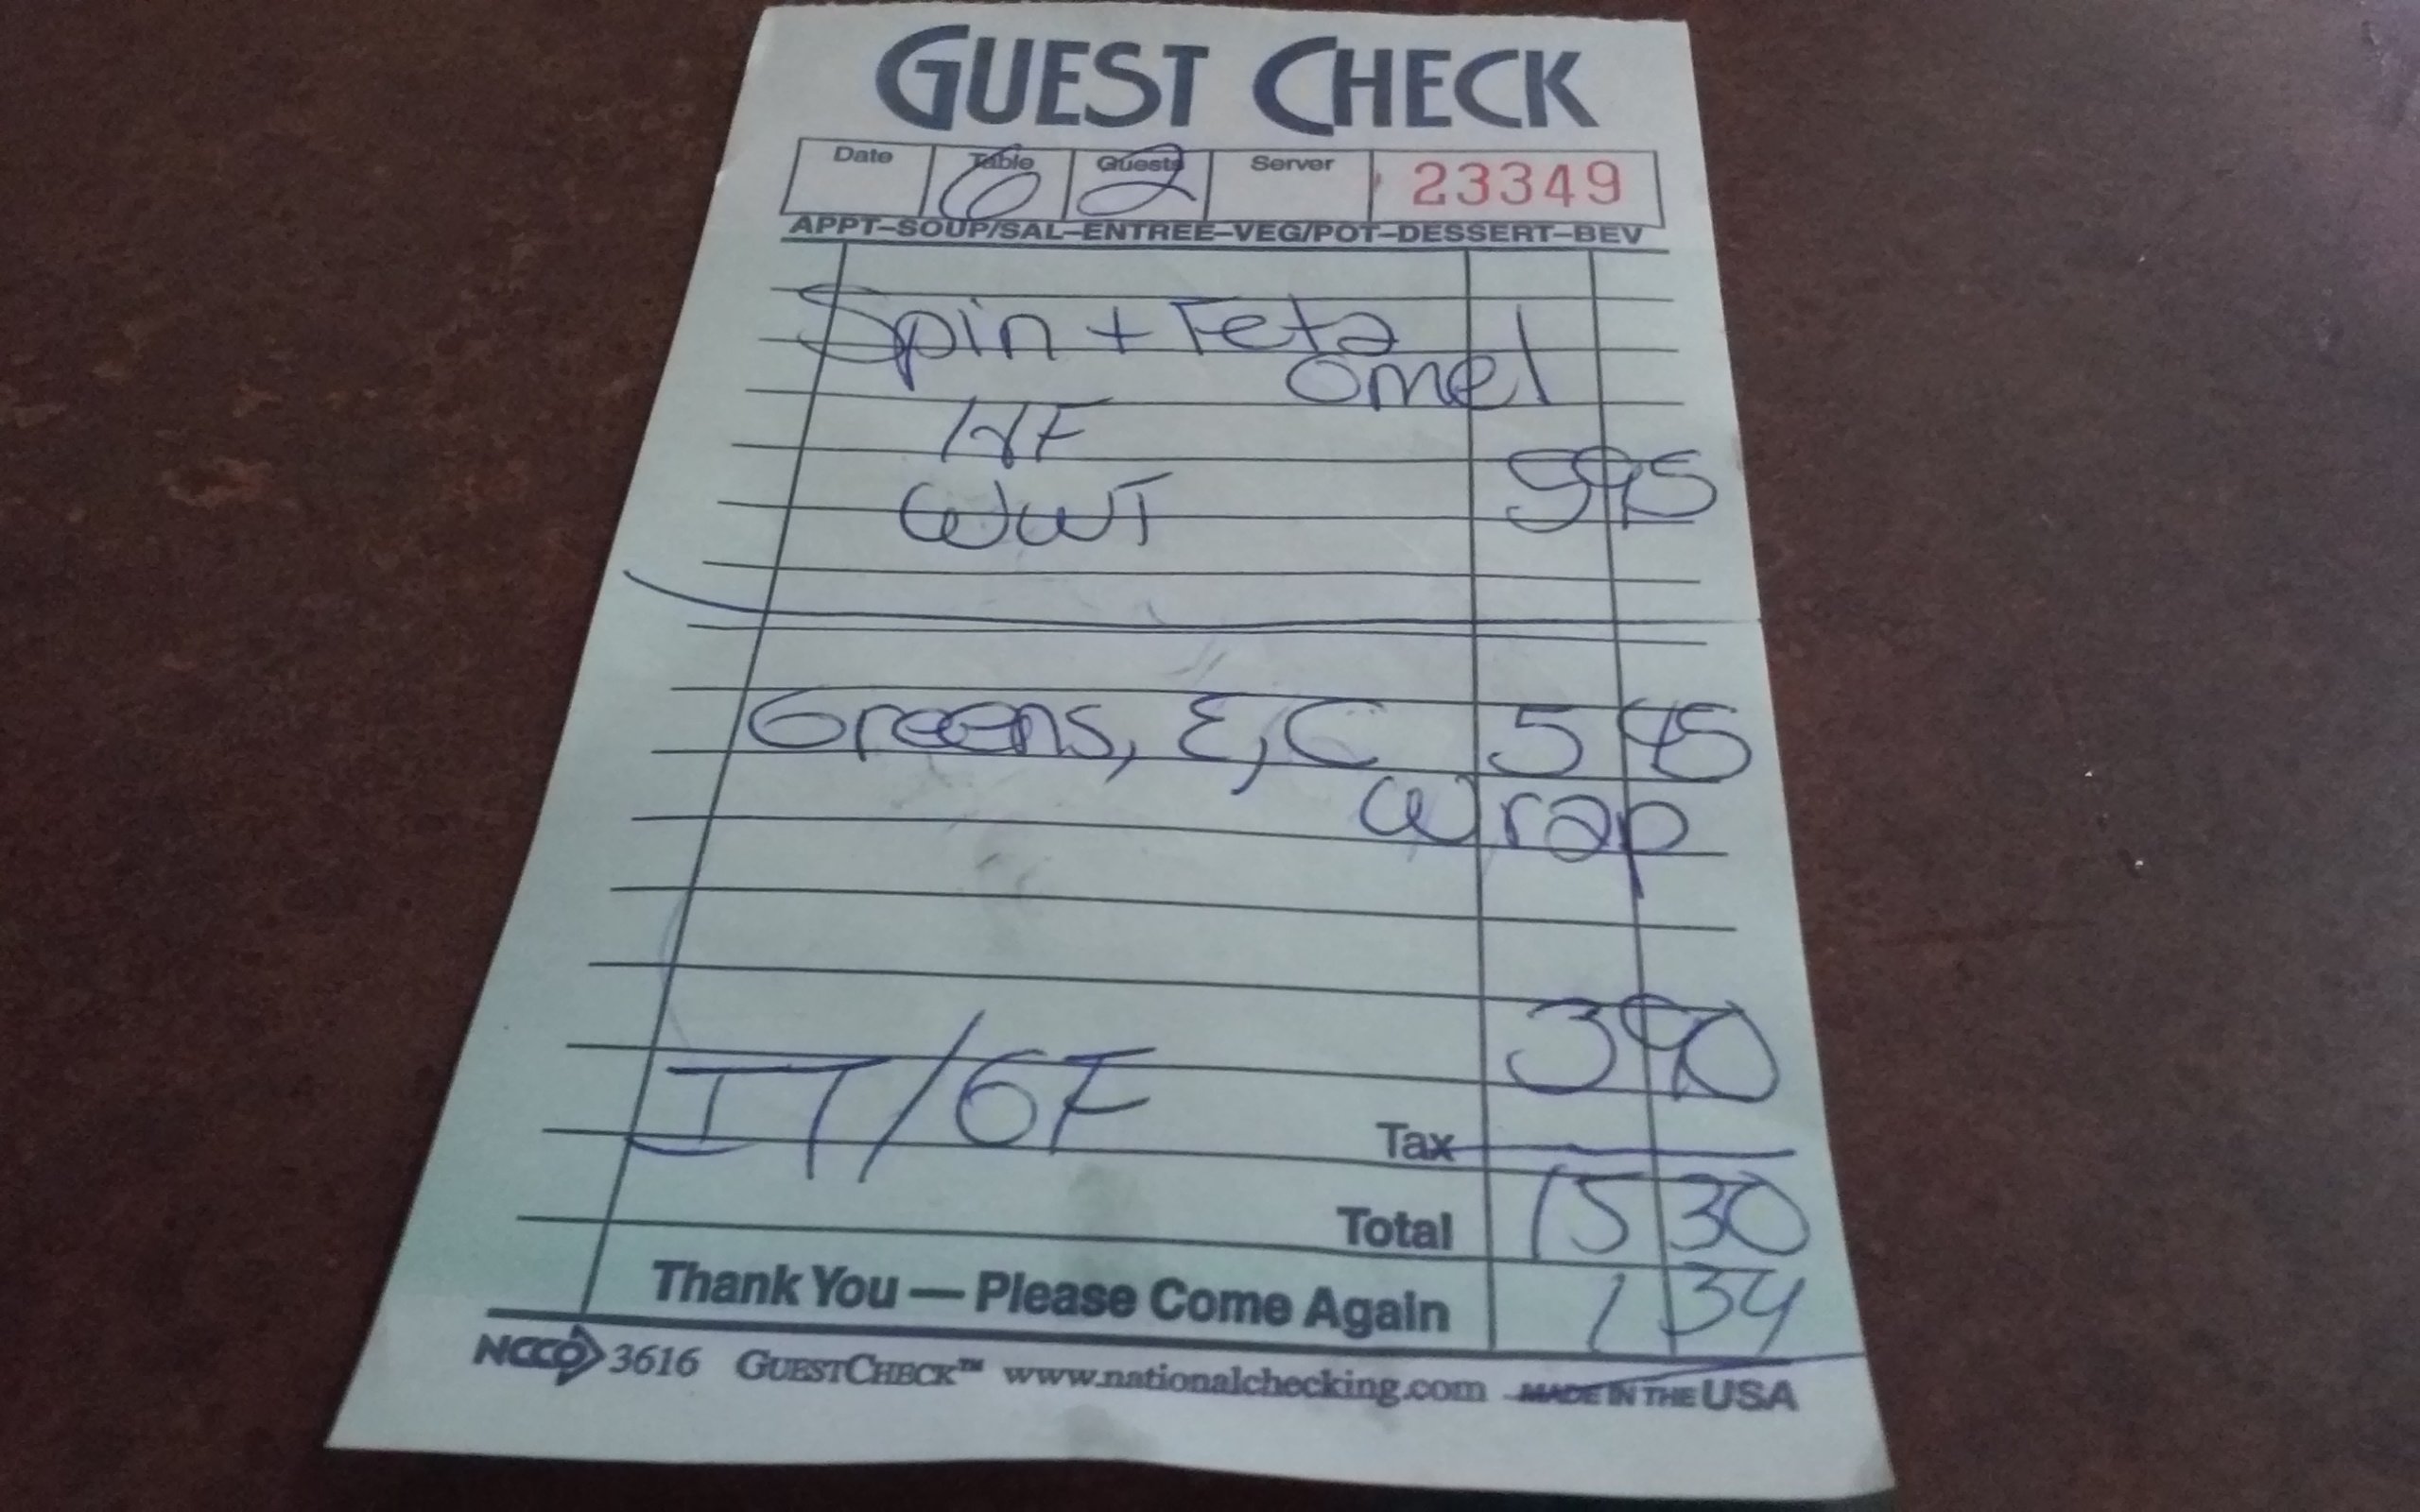 GUEST CHECK
Date Table Guests Server 23349
6 2
APPT–SOUP/SAL–ENTREE–VEG/POT–DESSERT–BEV
Spin + Feta
omel
HF
WWT 5 95
Greens, E, C 5 45
wrap
3 90
IT/GF
Tax
Total 15 30
Thank You — Please Come Again 1 34
NCCO 3616 GUESTCHECK™ www.nationalchecking.com MADE IN THE USA